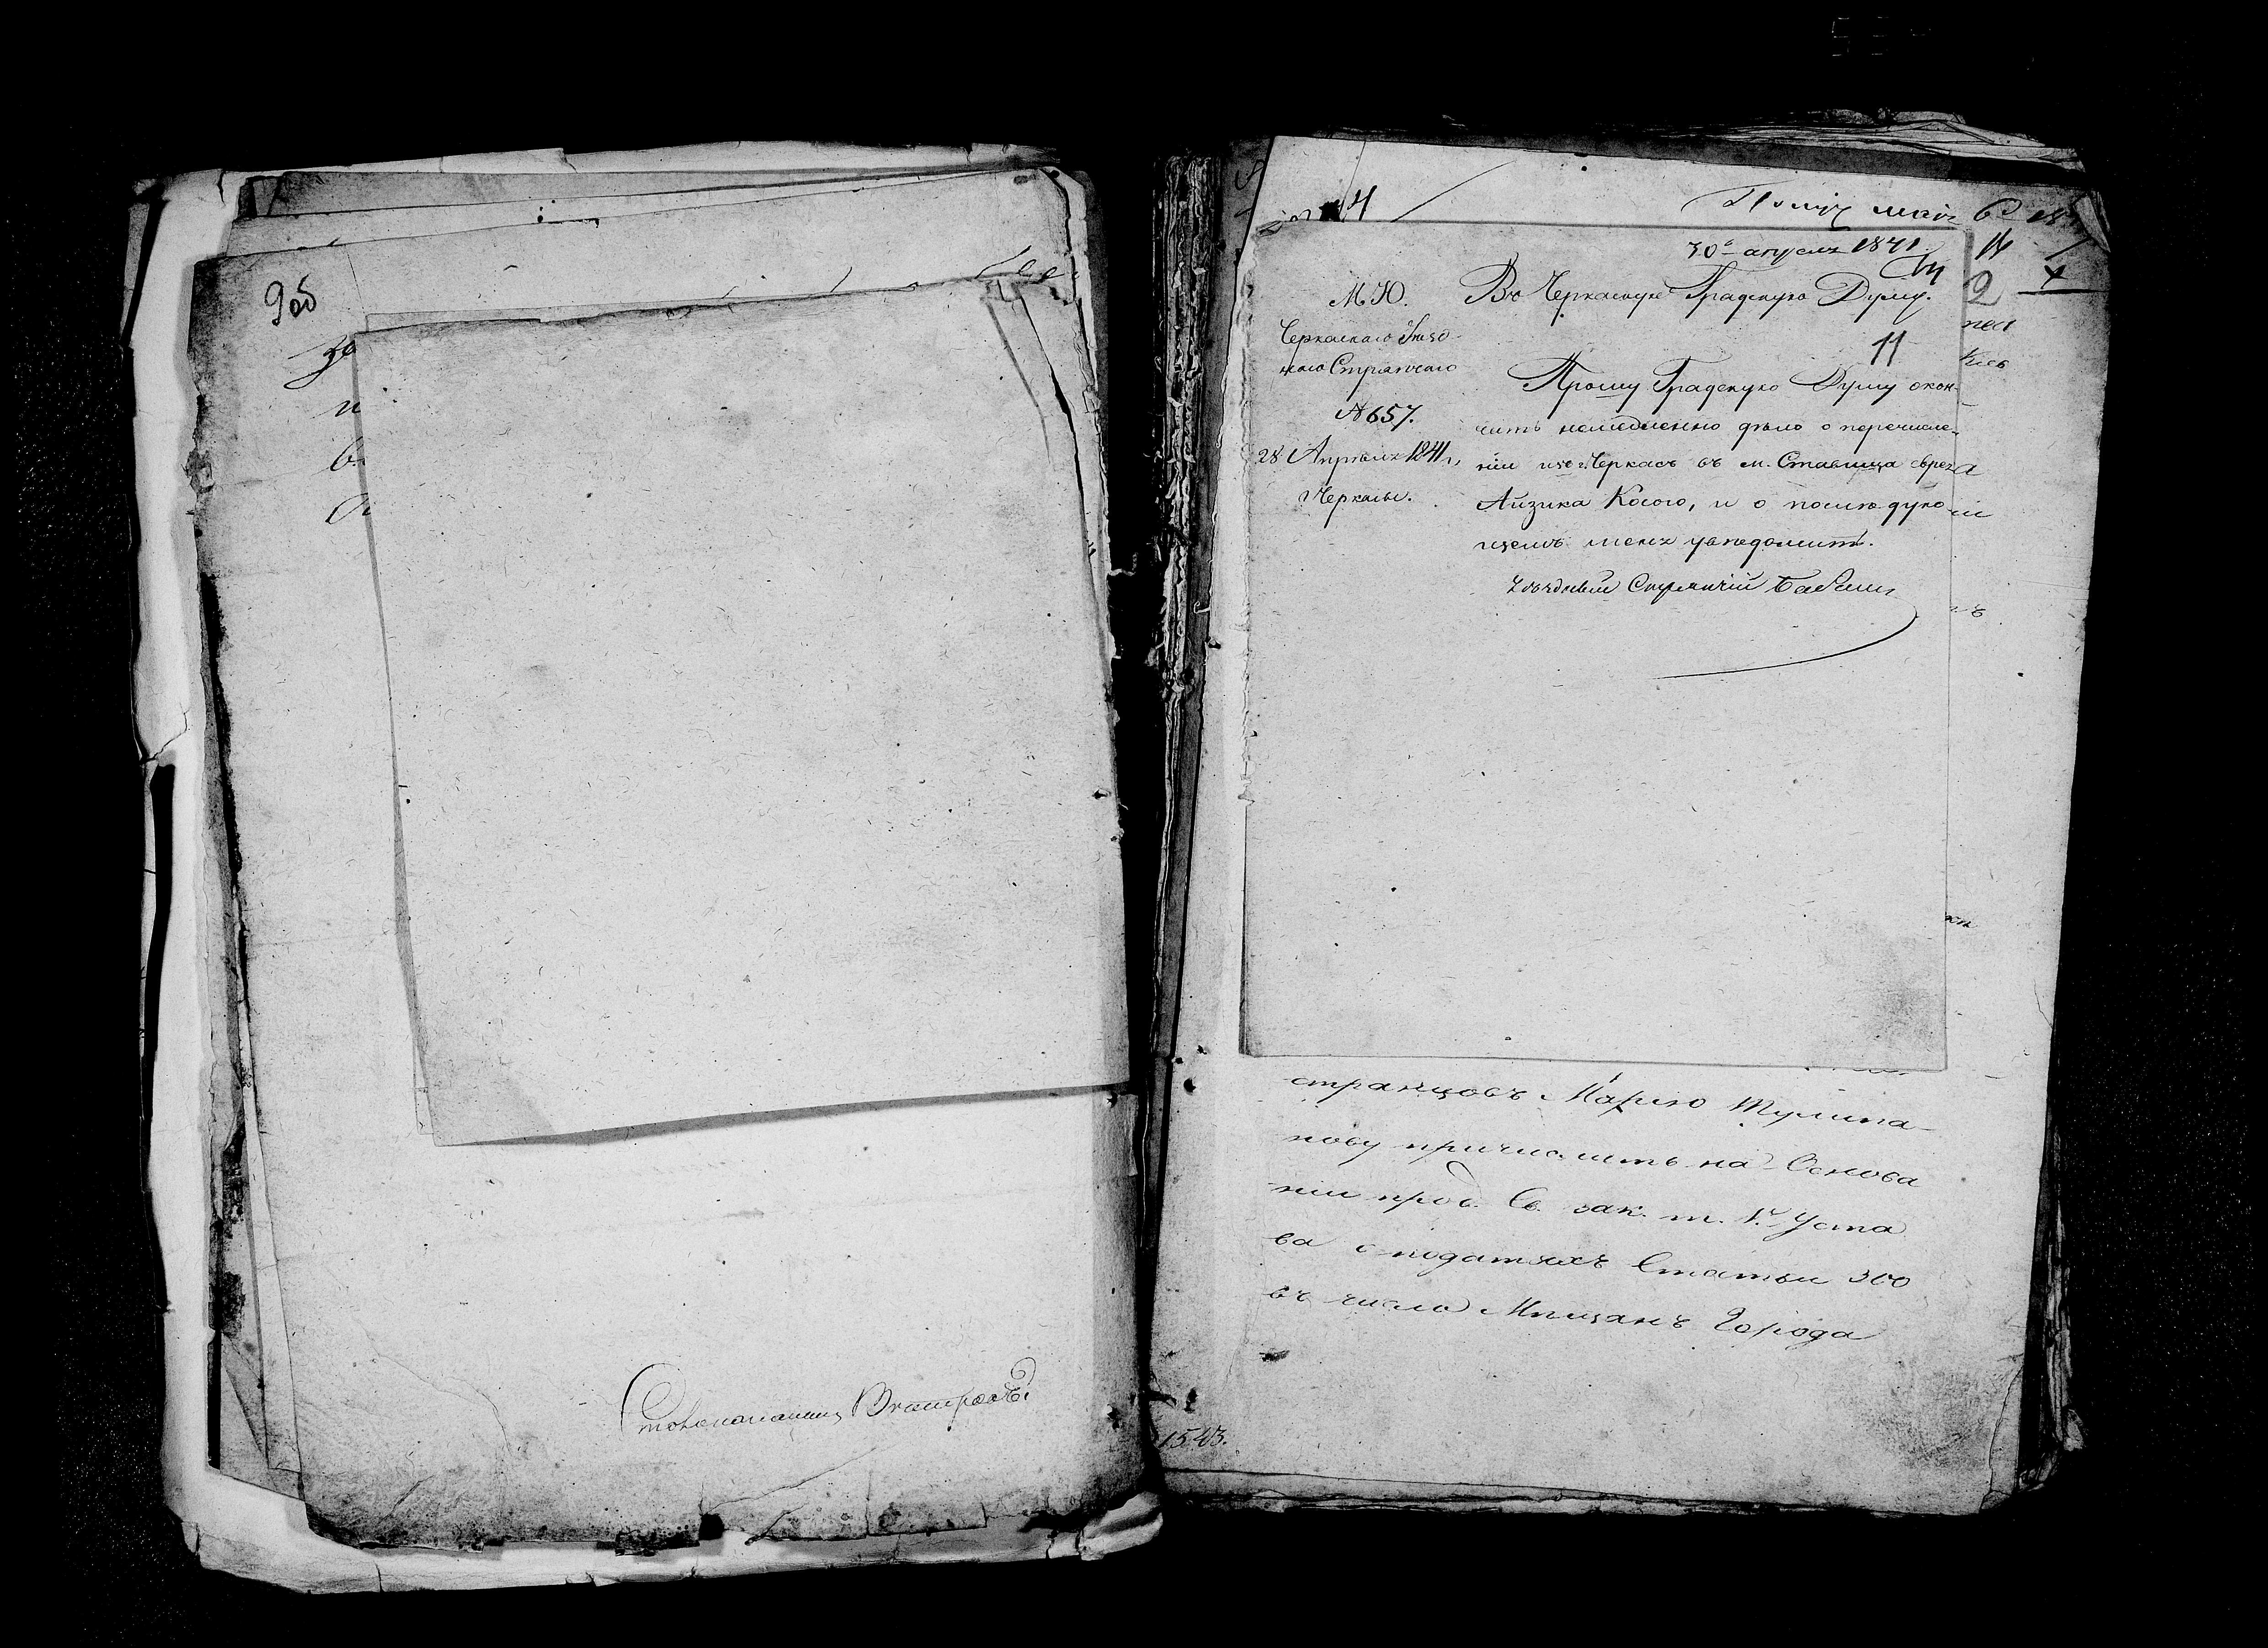 9об
Столоначальникъ
30го апреля 1841
М. Ю.
Черкаскаго Уѣзд-
наго Стряпчаго
№ 657.
28 Апрѣля 1841 г.
Черкасы.
Въ Черкаскую Градскую Думу.
11
Прошу Градскую Думу окон-
чить немедленно дѣло о перечисле-
нiи изъ г. Черкасъ въ м. Ставища еврея
Айзика Косого, и о послѣдую-
щемъ меня увѣдомить.
Уѣздный Стряпчій
странцовъ Марѳю Тулупа-
нову причислить на основа
нiи прод. Св. зак. т. V. Уста
ва о податяхъ Статьи 300
въ число Мѣщанъ Города
1543.